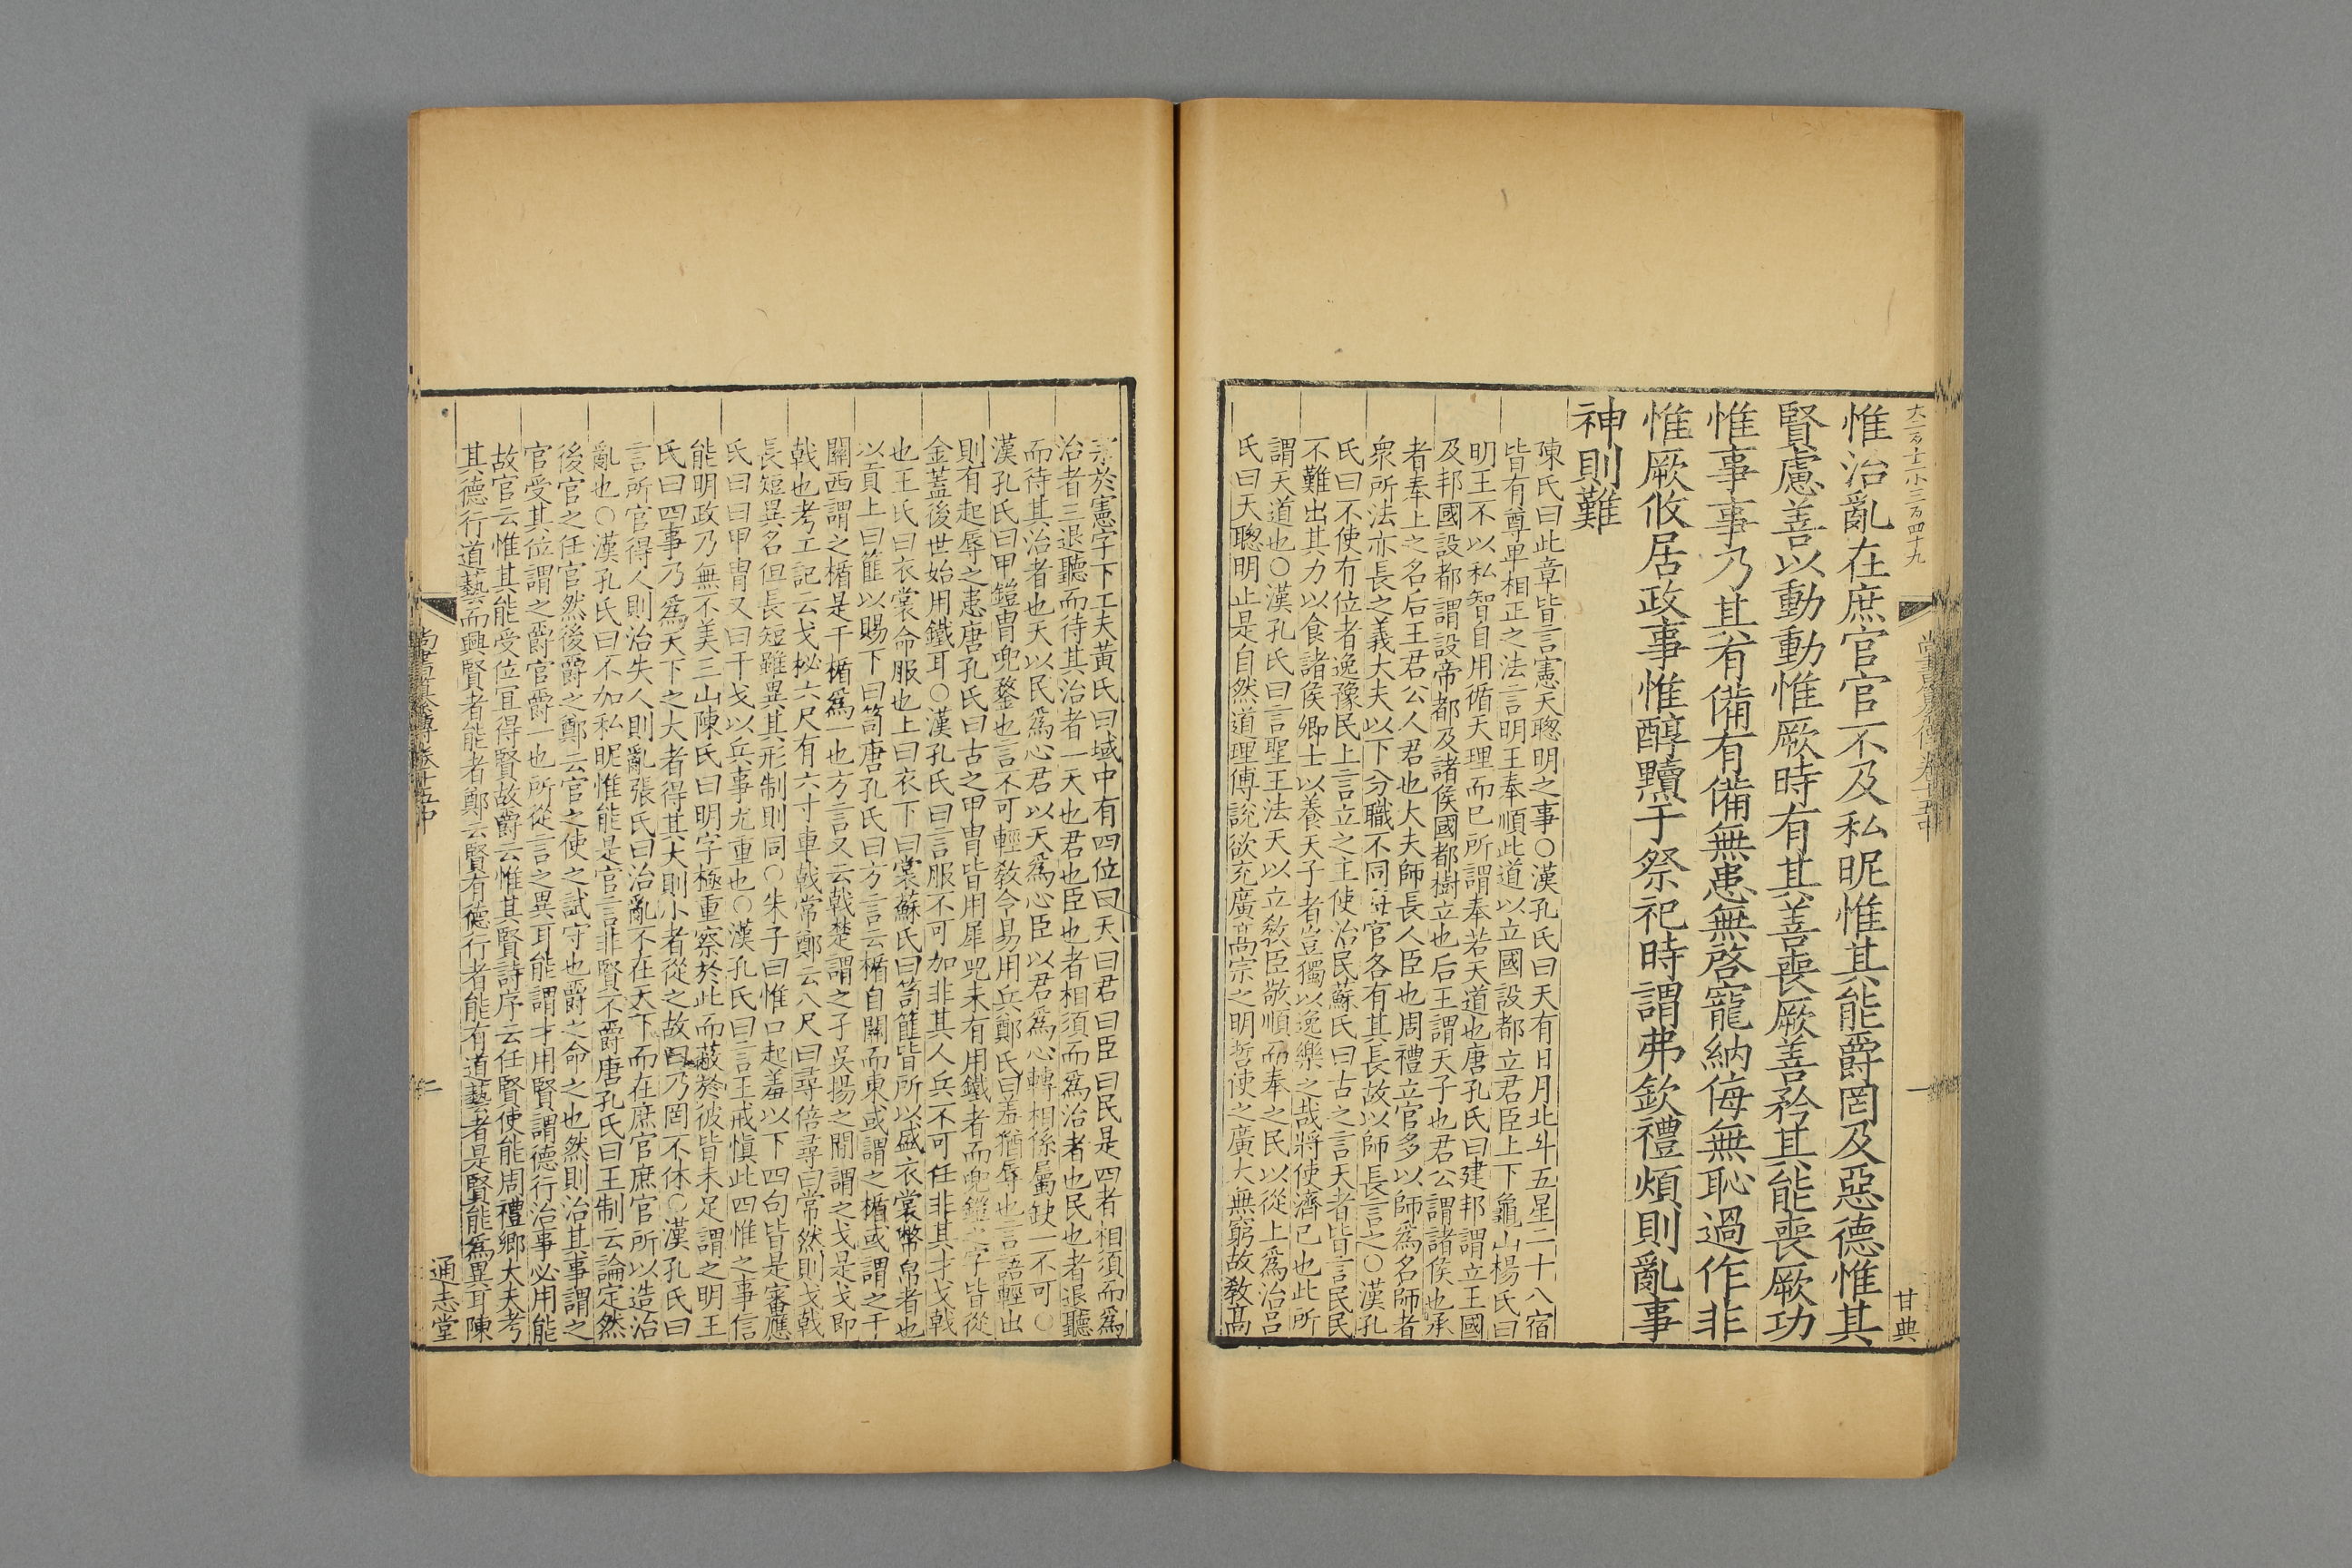 大二百十二小三百四十九
尚書纂傳卷十五中
一
甘典
惟治亂在庶官官不及私昵惟其能爵罔及惡德惟其
賢慮善以動動惟厥時有其善喪厥善矜其能喪厥功
惟事事乃其有備有備無患無啓寵納侮無恥過作非
惟厥攸居政事惟醇黷于祭祀時謂弗欽禮煩則亂事
神則難
陳氏曰此章皆言憲天聰明之事○漢孔氏曰天有日月北斗五星二十八宿
皆有尊卑相正之法言明王奉順此道以立國設都立君臣上下龜山楊氏曰
明王不以私智自用循天理而已所謂奉若天道也唐孔氏曰建邦謂立王國
及邦國設都謂設帝都及諸侯國都樹立也后王謂天子也君公謂諸侯也承
者奉上之名后王君公人君也大夫師長人臣也周禮立官多以師爲名師者
衆所法亦長之義大夫以下分職不同每官各有其長故以師長言之○漢孔
氏曰不使有位者逸豫民上言立之主使治民蘇氏曰古之言天者皆言民民
不難出其力以食諸侯卿士以養天子者豈獨以逸樂之哉將使濟已也此所
謂天道也○漢孔氏曰言聖王法天以立敎臣敬順而奉之民以從上爲治呂
氏曰天聰明止是自然道理傅說欲充廣高宗之明哲使之廣大無窮故敎高
宗於憲字下工夫黃氏曰域中有四位曰天曰君曰臣曰民是四者相須而爲
治者三退聽而待其治者一天也君也臣也者相須而爲治者也民也者退聽
而待其治者也天以民爲心君以天爲心臣以君爲心轉相係屬缺一不可○
漢孔氏曰甲鎧胄兜鍪也言不可輕敎令易用兵鄭氏曰羞猶辱也言語輕出
則有起辱之恚唐孔氏曰古之甲胄皆用犀兕未有用鐵者而兜鍪之字皆從
金蓋後世始用鐵耳○漢孔氏曰言服不可加非其人兵不可任非其才戈戟
也王氏曰衣裳命服也上曰衣下曰裳蘇氏曰笥篚皆所以盛衣裳幣帛者也
以貢上曰篚以賜下曰笥唐孔氏曰方言云楯自關而東或謂之楯或謂之干
關西謂之楯是干楯爲一也方言又云戟楚謂之孑吳揚之閒謂之戈是戈即
戟也考工記云戈柲六尺有六寸車戟常鄭云八尺曰尋倍尋曰常然則戈戟
長短異名但長短雖異其形制則同○朱子曰惟口起羞以下四句皆是審應
氏曰曰甲胄又曰干戈以兵事尤重也○漢孔氏曰言王戒愼此四惟之事信
能明政乃無不美三山陳氏曰明字極重察於此而蔽於彼皆未足謂之明王
氏曰四事乃爲天下之大者得其大則小者從之故曰乃罔不休○漢孔氏曰
言所官得人則治失人則亂張氏曰治亂不在天下而在庶官庶官所以造治
亂也○漢孔氏曰不加私昵惟能是官言非賢不爵唐孔氏曰王制云論定然
後官之任官然後爵之鄭云官之使之試守也爵之命之也然則治其事謂之
官受其位謂之爵官爵一也所從言之異耳能謂才用賢謂德行治事必用能
故官云惟其能受位宜得賢故爵云惟其賢詩序云任賢使能周禮鄉大夫考
其德行道藝而興賢者能者鄭云賢有德行者能有道藝者是賢能爲異耳陳
尚書纂傳卷十五中
二
通志堂